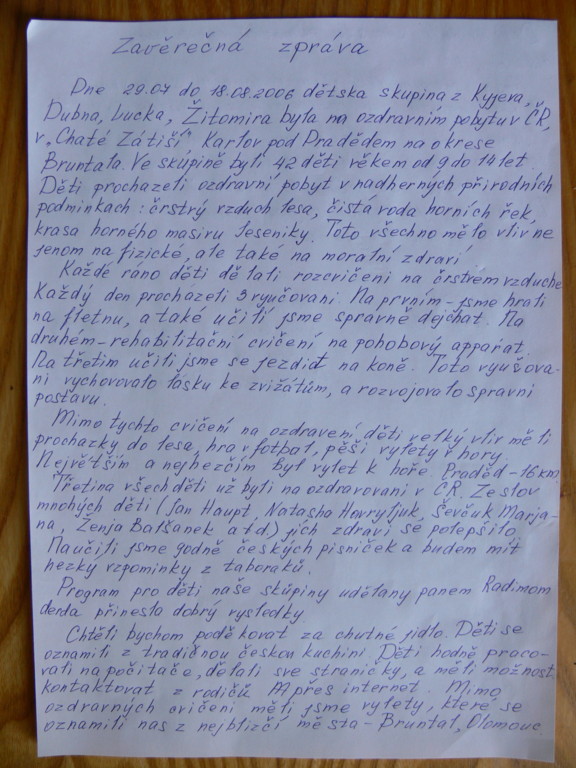 Zavěrečná zpráva
Dne 29.07 do 18.08.2006 dětska skupina z Kyjeva,
Dubna, Lucka, Žitomira byla na ozdravním pobytu v ČR,
v „Chatě Zátiší" Karlov pod Pradědem na okrese
Bruntala. Ve skúpině byli 42 děti věkem od 9 do 14 let.
Děti prochazeli ozdravní pobyt v nadherných přirodních
podminkach: črstvý vzduch lesa, čistá voda horních řek,
krasa horného masivu Jeseniky. Toto všechno mělo vliv ne
jenom na fizické, ale také na moralní zdraví.
Každé ráno děti dělali rozcvičeni na črstrém vzduche
Každý den prochazeli 3 vyučovani. Na prvním - jsme hrali
na fletnu, a také učili jsme spravně dejchat. Na
druhém - rehabilitační cvičení na pohobový apparat.
Na třetim učili jsme se jezdit na koně. Toto vyušova-
ni vychovovalo lásku ke zvižátům, a rozvojovalo spravni
postavu.
Mimo tychto cvičení na ozdravení, děti velký vliv měli
prochazky do lesa, hra v fotbal, pěši vylety v hory.
Největším a nejhezčím byl vylet k hoře. Praděd - 16 km.
Třetina všech děti už byli na ozdravovani v ČR. Ze slov
mnohých děti (Jan Haupt, Natasha Havryljuk, Ševčuk Marja-
na, Ženja Balšanek a td.) jich zdravi se polepšilo.
Naučili jsme godně českých pisniček a budem mít
hezky vzpominky z taboraků.
Program pro děti naše skúpiny udělany panem Radimom
derda přineslo dobrý vysledky.
Chtěli bychom poděkovat za chutné jidlo. Děti se
oznamili z tradičnou českou kuchini. Děti hodně praco-
vali na počitače, dělali sve straničky, a měli možnost
kontaktovat z rodičů přes internet. Mimo
ozdravných cvičeni měli jsme vylety, které se
oznamili nas z nejblizčí města - Bruntal, Olomouc